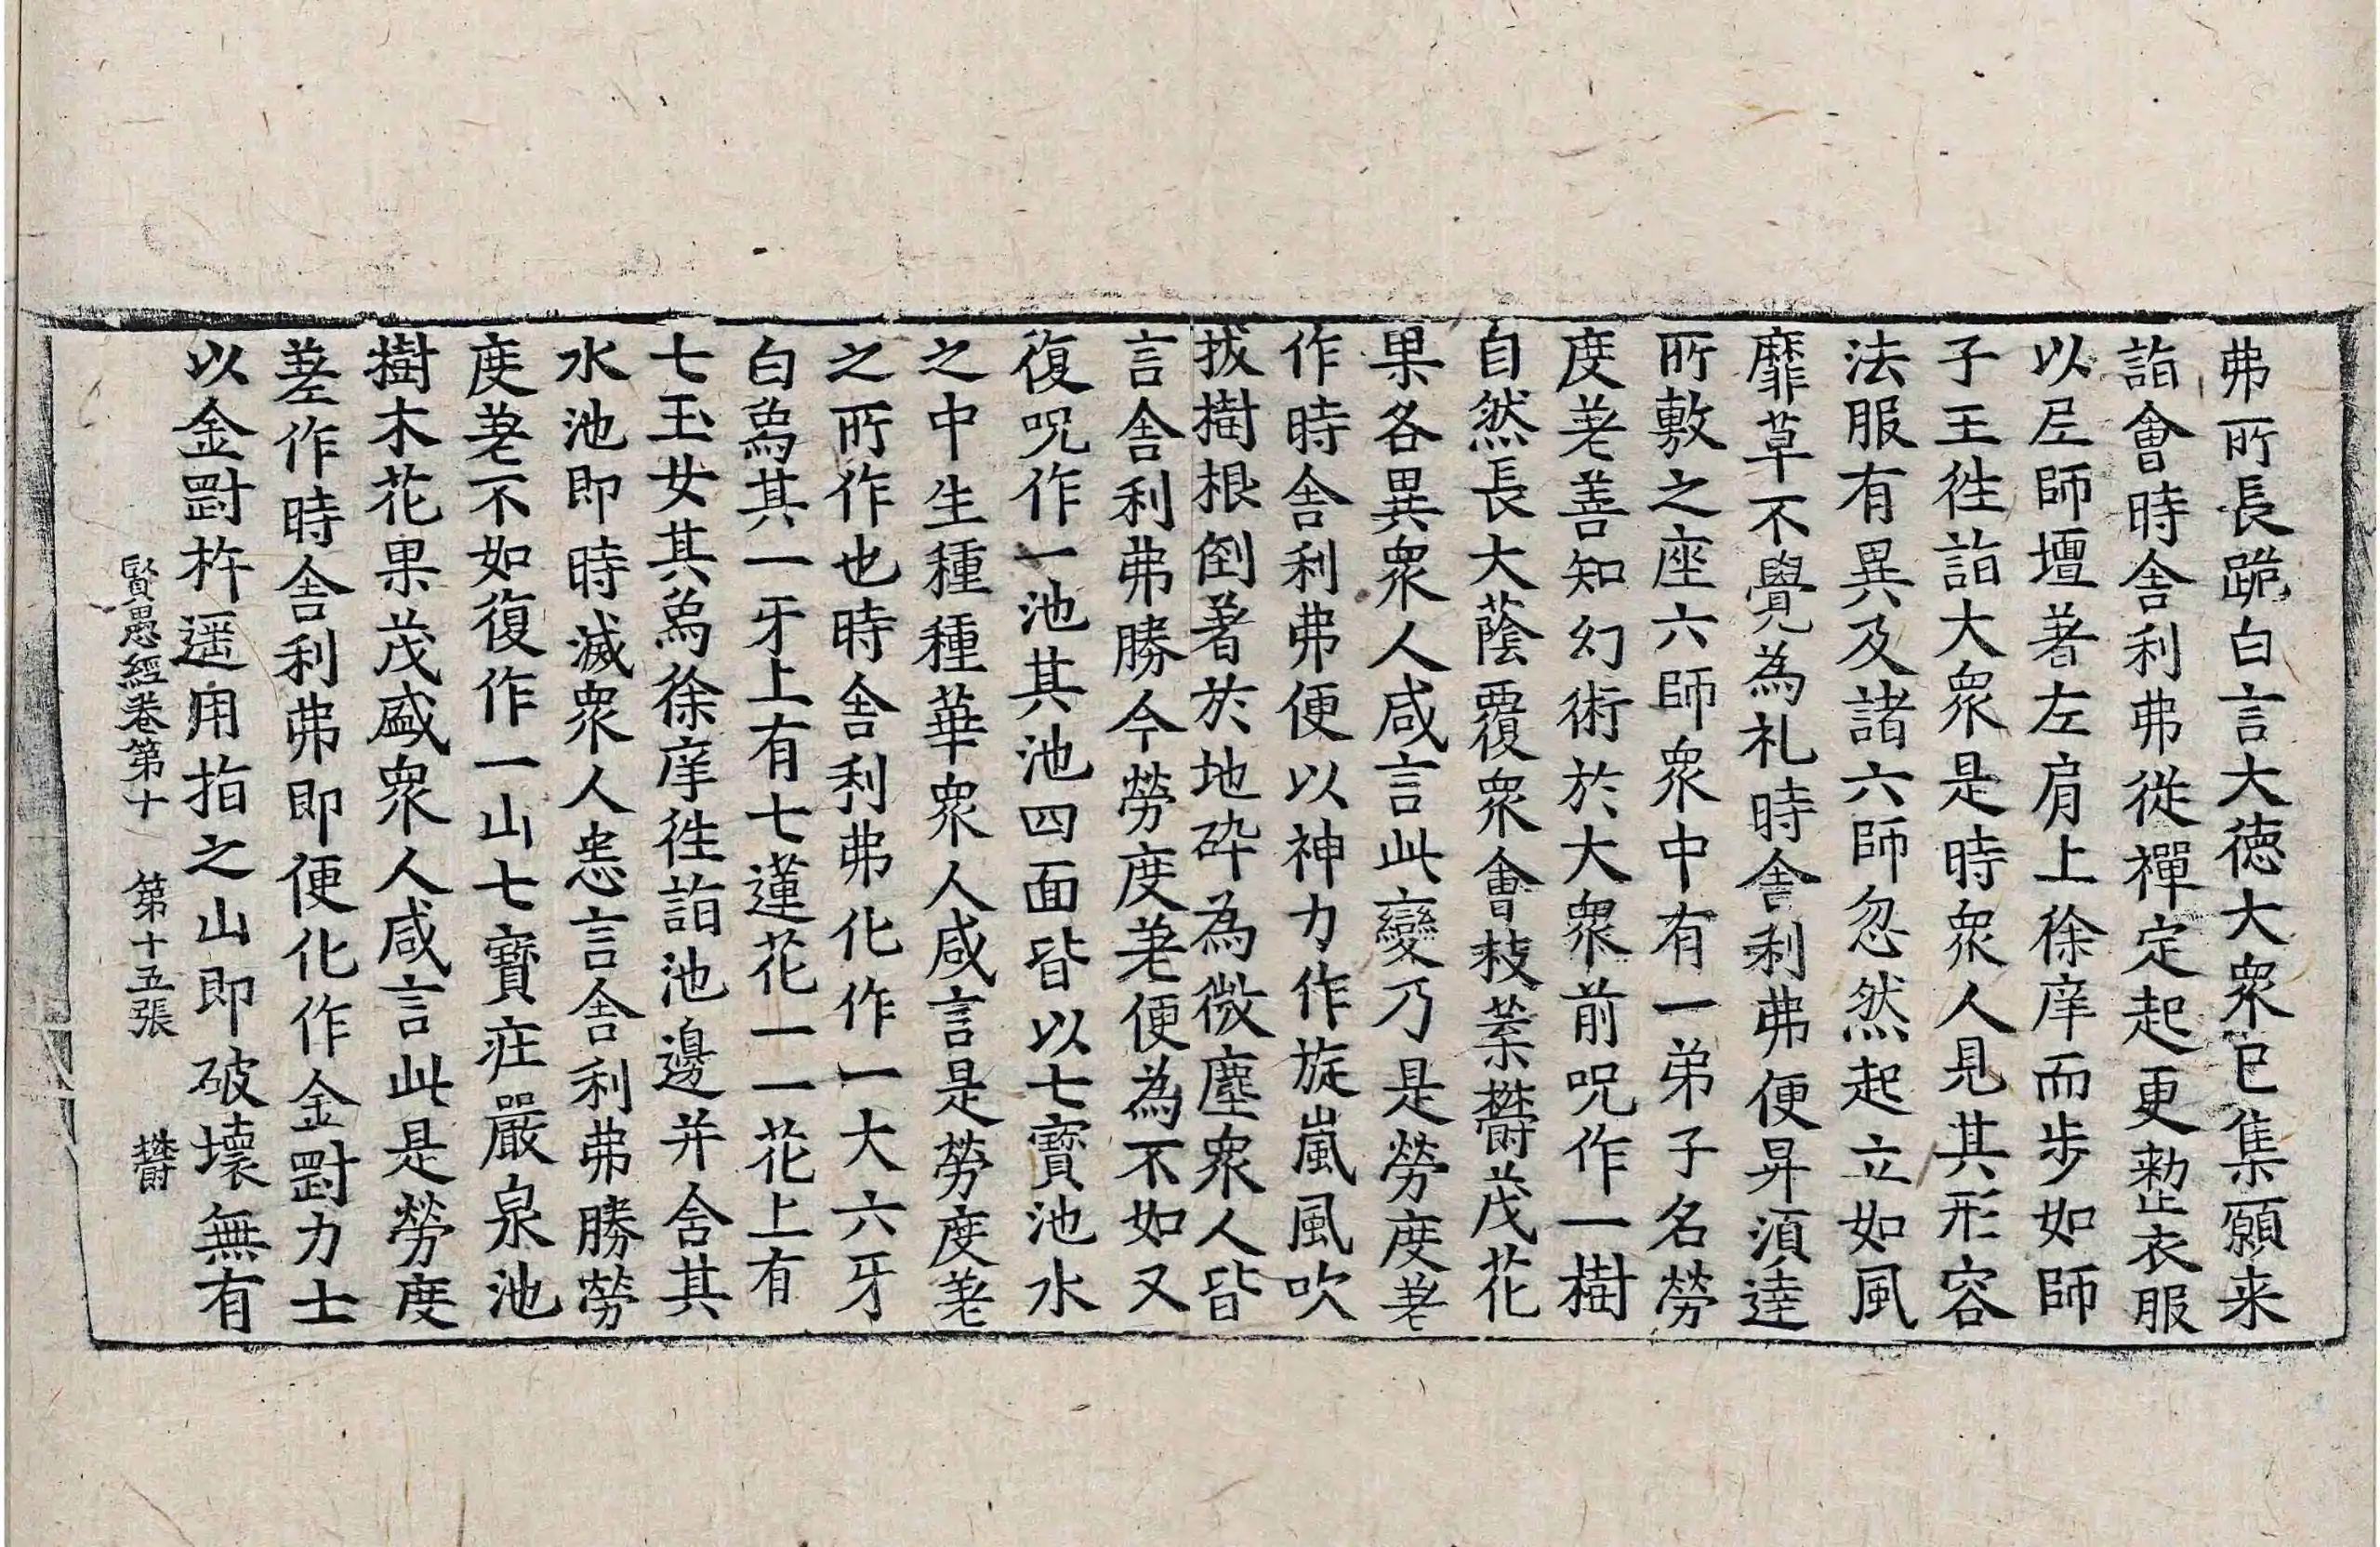 弗所長跪白言大德大衆已集願来
詣會時舍利弗從禪定起更整衣服
以尼師壇著左肩上徐庠而步如師
子王徃詣大衆是時衆人見其形容
法服有異及諸六師忽然起立如風
靡草不覺為礼時舍利弗便昇湏達
所敷之座六師衆中有一弟子名勞
度差善知幻術於大衆前呪作一樹
自然長大蔭覆衆會枝葉欝茂花
果各異衆人咸言此變乃是勞度差
作時舍利弗便以神力作旋嵐風吹
拔樹根倒著於地碎為微塵衆人皆
言舍利弗勝今勞度差便為不如又
復呪作一池其池四面皆以七寶池水
之中生種種華衆人咸言是勞度差
之所作也時舍利弗化作一大六牙
白象其一牙上有七蓮花一一花上有
七玉女其象徐庠徃詣池邊并含其
水池即時滅衆人悉言舍利弗勝勞
度差不如復作一山七寶莊嚴泉池
樹木花果茂盛衆人咸言此是勞度
差作時舍利弗即便化作金剛力士
以金剛杵遥用指之山即破壞無有
賢愚經卷第十　第十五張　欝